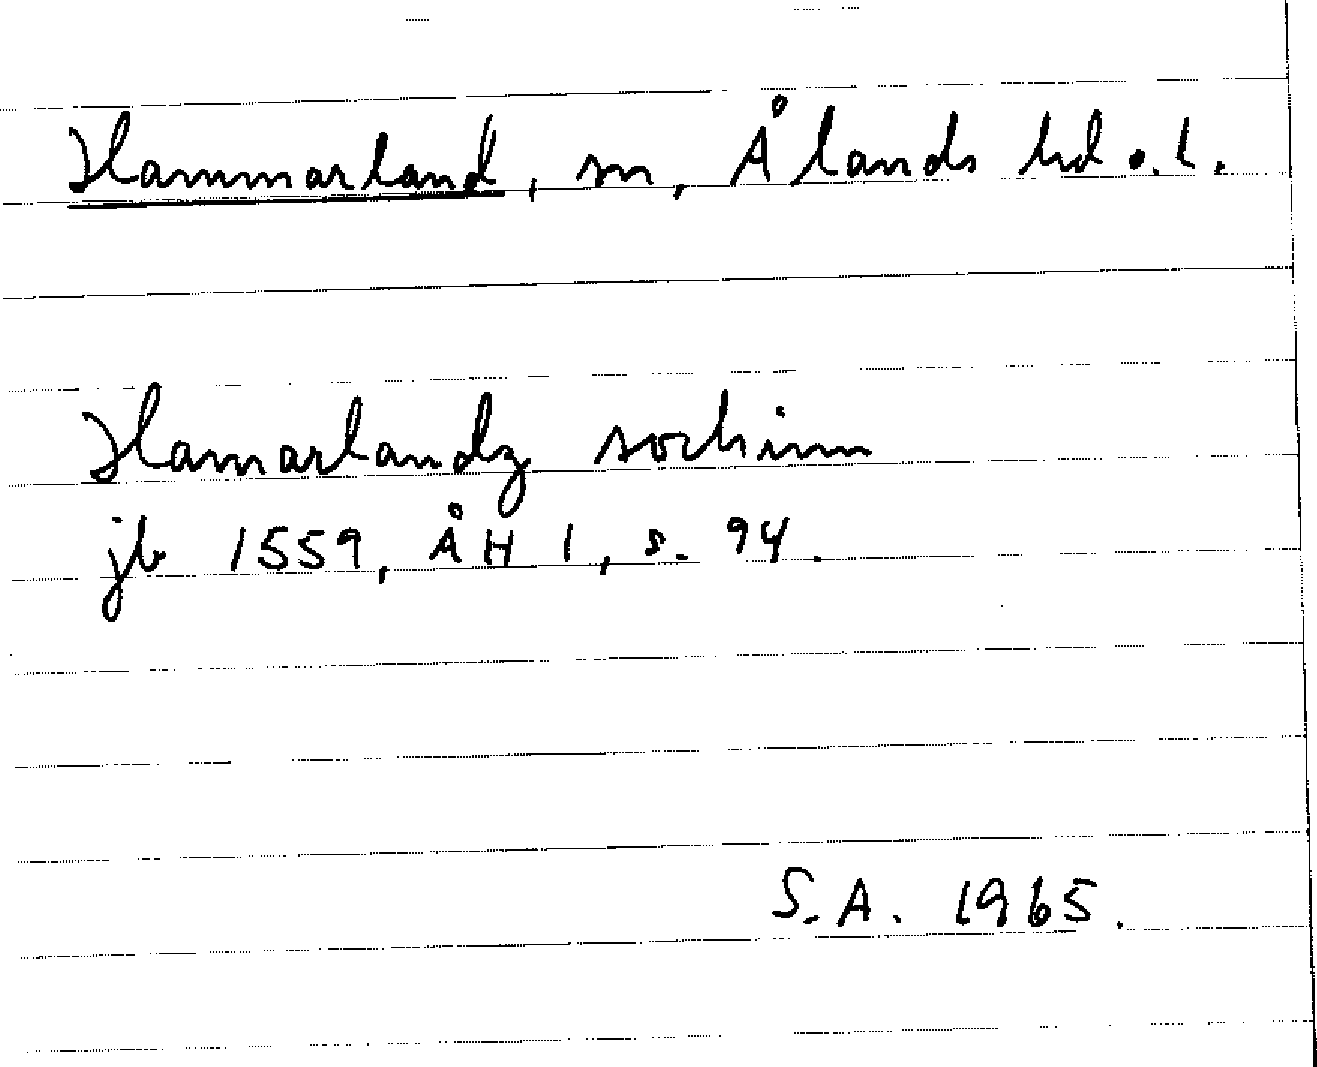 Hammarland, sn, Ålands hd o. l.
Hamarlandz sochinn
jb 1559, ÅH 1, s. 94.
S.A. 1965.